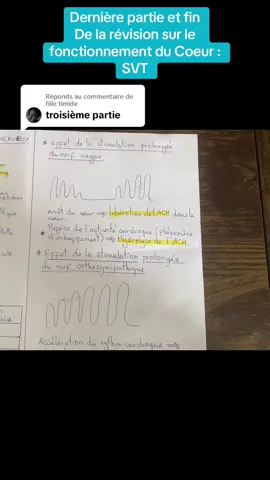 Dernière partie et fin
De la révision sur le
fonctionnement du Coeur :
SVT
Réponds au commentaire de
fille timide
troisième partie
* Effet de la stimulation prolongée
du nerf vague
Arrêt du cœur => libération de l'ACH dans le
cœur.
* Reprise de l'activité cardiaque (phénomène
d'échappement) => Hydrolyse de l'ACH
* Effet de la stimulation prolongée
du nerf orthosympathique
Accélération du rythm cardiaque =>